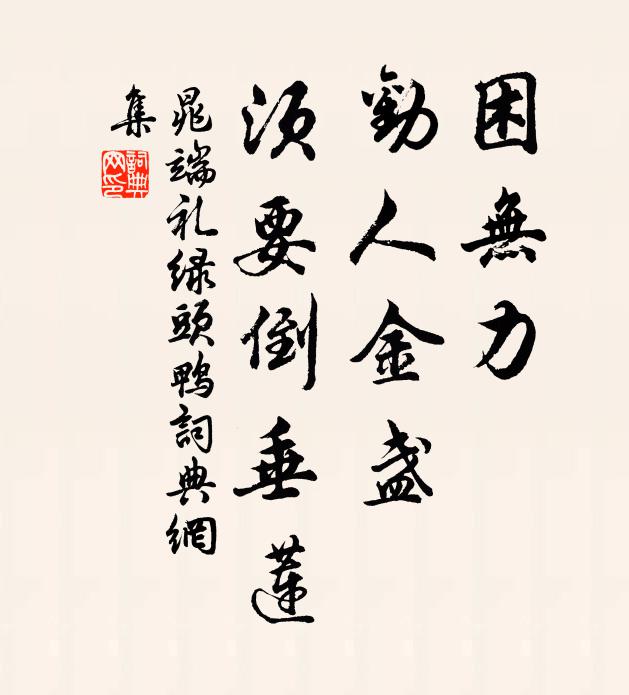 困無力
勸人金盞
須要倒垂蓮
晁端礼緑頭鴨詞典網
集
詞典網印